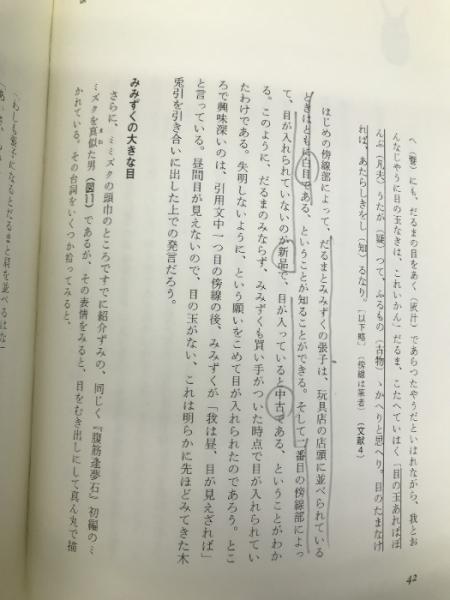 42
へ（聟）にも、だるまの目をあく（灰汁）であらつたやうだといはれながら、我とお
んなじやうに目の玉なきは、これいかん」だるま、こたへていはく「目の玉あればほ
んぶ（凡夫）うたが（疑）つて、ふるもの（古物）ゝかへりと思へり。目のたまなけ
れば、あたらしきをし（知）るなり。［以下略］（傍線は筆者）（文献4）
はじめの傍線部によって、だるまとみみずくの張子は、玩具店の店頭に並べられている
ときはともに白目である、ということが知ることができる。そして二番目の傍線部によっ
て、目が入れられていないのが新品で、目が入っていると中古である、ということがわか
る。このように、だるまのみならず、みみずくも買い手がついた時点で目が入れられてい
たわけである。失明しないように、という願いをこめて目が入れられたのであろう。とこ
ろで興味深いのは、引用文中一つ目の傍線の後、みみずくが「我は昼、目が見えざれば」
と言っている。昼間目が見えないので、目の玉がない、これは明らかに先ほどみてきた木
兎引を引き合いに出した上での発言だろう。
みみずくの大きな目
さらに、ミミズクの頭巾のところですでに紹介ずみの、同じく『腹筋逢夢石』初編のミ
ミズクを真似た男（図11）であるが、その表情をみると、目をむき出しにして真ん丸で描
かれている。その台詞をいくつか拾ってみると、